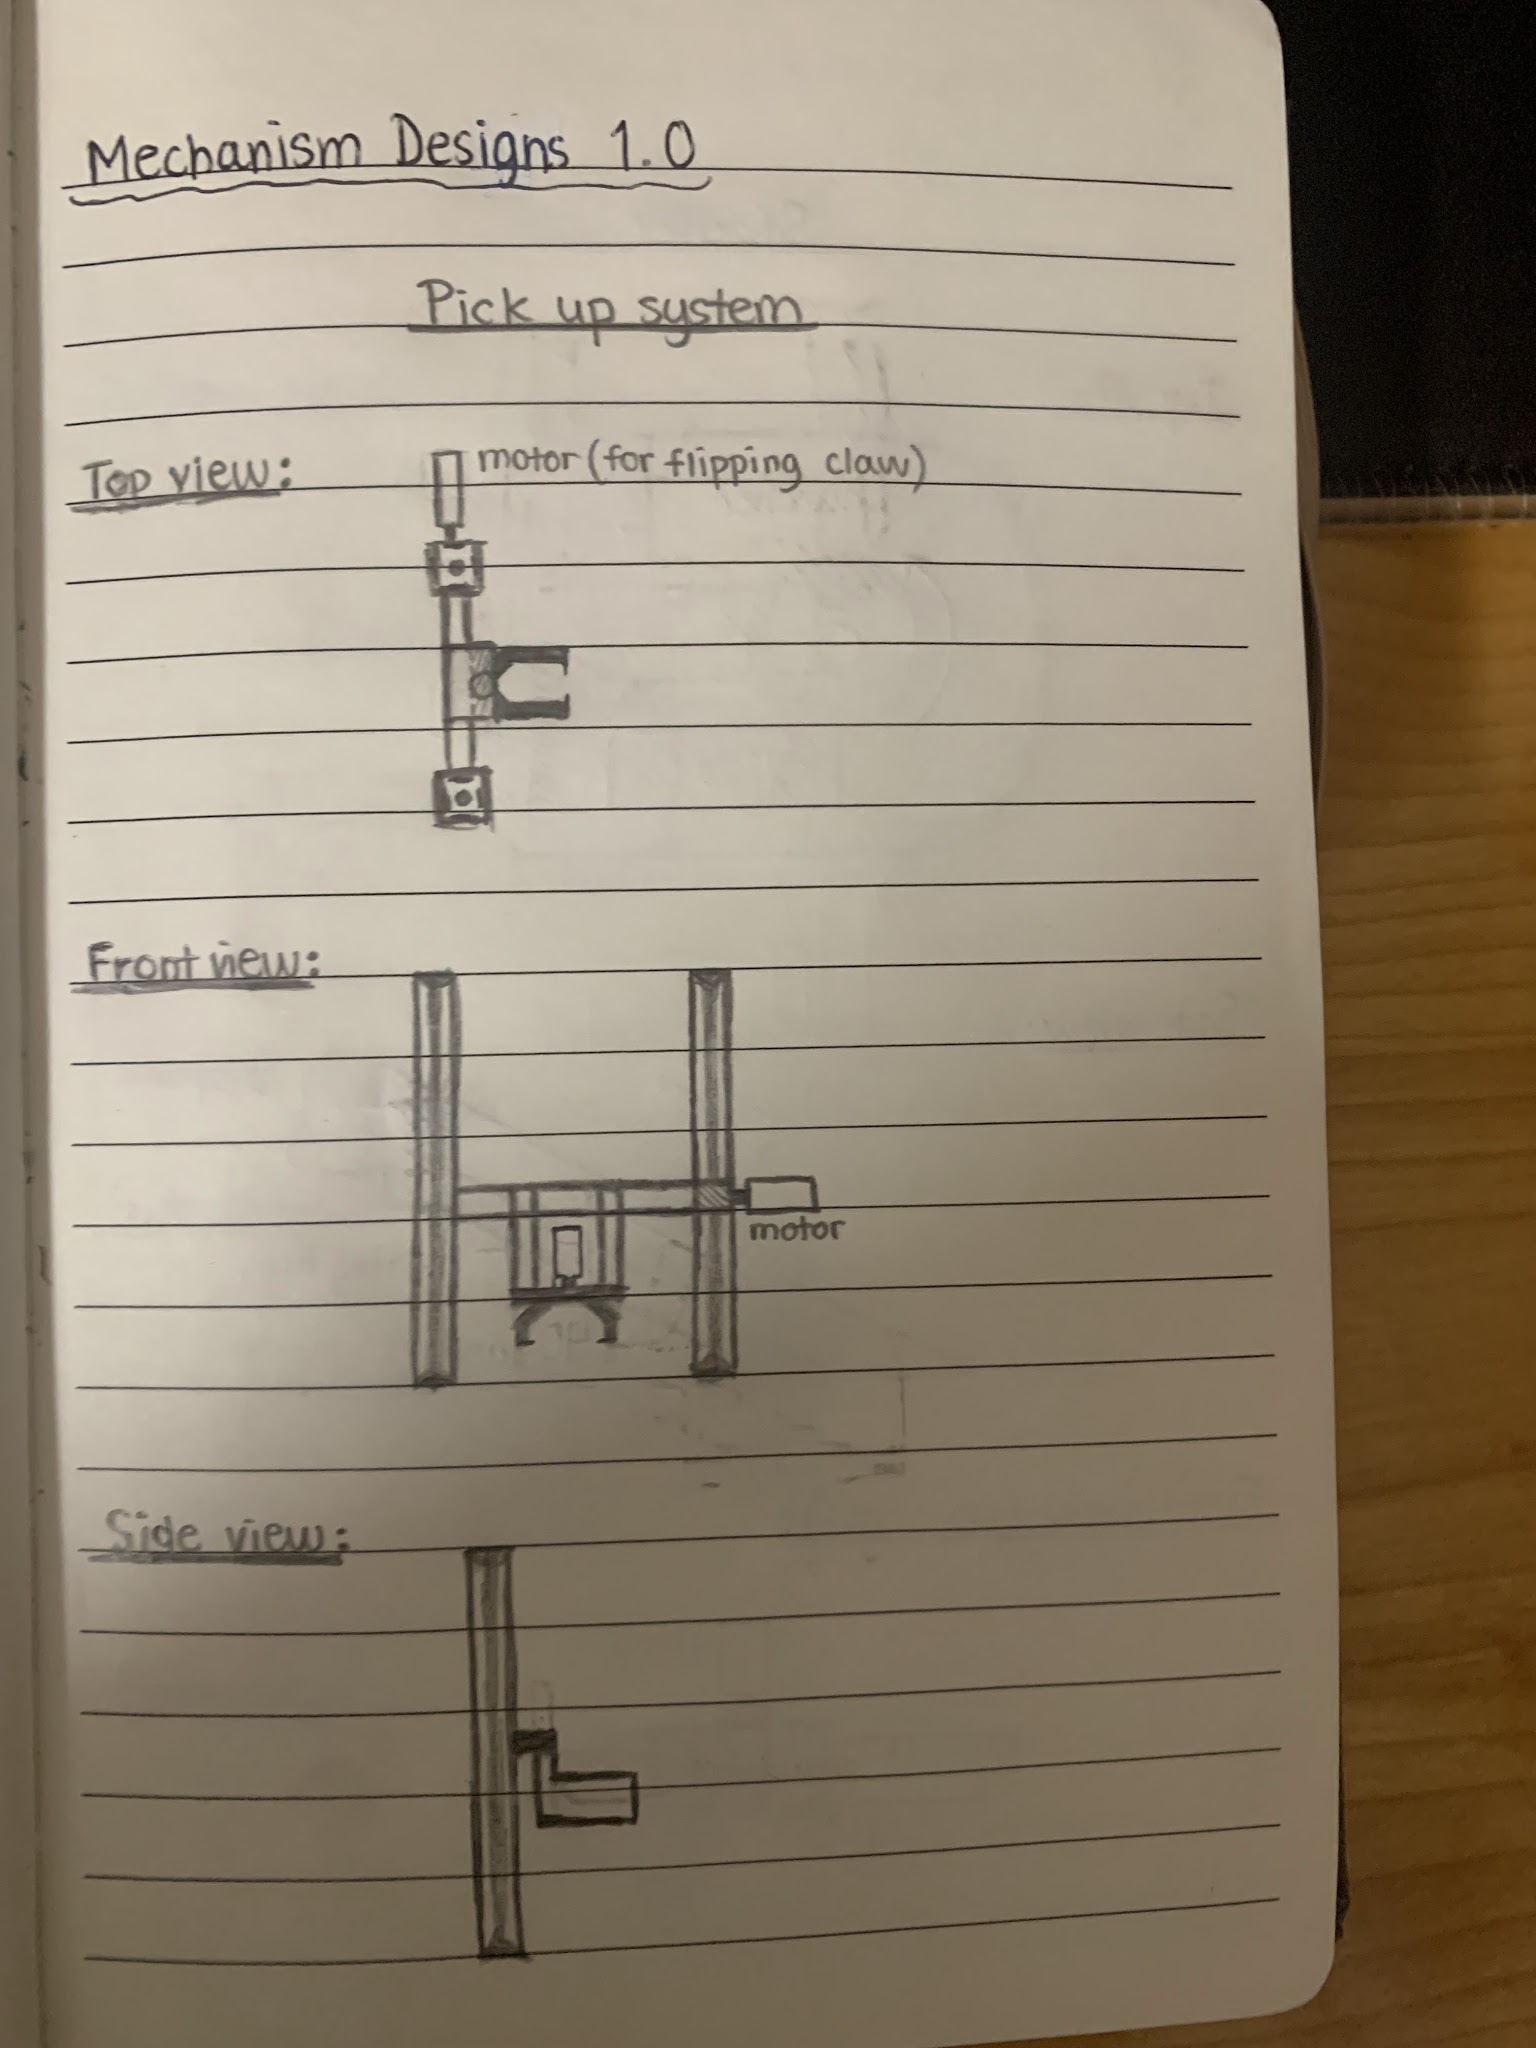 Mechanism Designs 1.0
Pick up system
Top view:
motor (for flipping claw)
Front view:
motor
Side view: